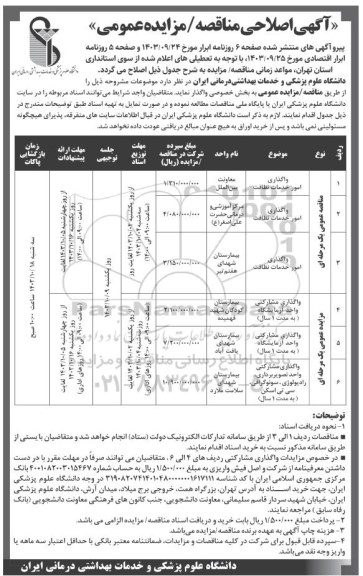 «آگهی اصلاحی مناقصه / مزایده عمومی»
پیرو آگهی های منتشر شده صفحه ۶ روزنامه ابرار مورخ ۱۴۰۳/۰۹/۲۴ و صفحه ۵ روزنامه
ابرار اقتصادی مورخ ۱۴۰۳/۰۹/۲۵، با توجه به تعطیلی های اعلام شده از سوی استانداری
استان تهران، مواعد زمانی مناقصه/ مزایده به شرح جدول ذیل اصلاح می گردد.
دانشگاه علوم پزشکی و خدمات بهداشتی درمانی ایران در نظر دارد موضوعات مشروحه ذیل را
از طریق مناقصه/ مزایده عمومی به بخش خصوصی واگذار نماید. متقاضیان واجد شرایط می توانند اسناد مربوطه را در سایت
دانشگاه علوم پزشکی ایران یا پایگاه ملی مناقصات مطالعه نموده و در صورت تمایل به تهیه اسناد طبق توضیحات مندرج در
ذیل جدول اقدام نمایند. لازم به ذکر است دانشگاه علوم پزشکی ایران در قبال اطلاعات سایت های متفرقه، پذیرای هیچگونه
مسئولیتی نمی باشد و پس از خرید اوراق به هیچ عنوان مبالغ دریافتی عودت داده نخواهد شد.
ردیف نوع موضوع نام واحد مبلغ سپرده شرکت در مناقصه/ مزایده (ریال) مهلت توزیع اسناد جلسه توجیهی مهلت ارائه پیشنهادات زمان بازگشایی پاکات
مناقصه عمومی یک مرحله ای
۱ واگذاری امور خدمات نظافت معاونت بین الملل
۲ واگذاری امور خدمات نظافت مرکز آموزشی و درمانی حضرت علی اصغر(ع)
۳ واگذاری امور خدمات نظافت بیمارستان شهدای هفتم تیر
مزایده عمومی یک مرحله ای
۴ واگذاری مشارکتی واحد آزمایشگاه (به مدت ۱ سال) بیمارستان
۵ واگذاری مشارکتی واحد آزمایشگاه (به مدت ۱ سال) بیمارستان شهدای یافت آباد
۶ واگذاری مشارکتی واحد تصویربرداری، رادیولوژی، سونوگرافی، سی تی اسکن (به مدت ۱ سال) بیمارستان شهدای سلامت ملارد
توضیحات:
۱- نحوه دریافت اسناد:
* مناقصات ردیف ۱ الی ۳ از طریق سامانه تدارکات الکترونیک دولت (ستاد) انجام خواهد شد و متقاضیان بایستی از
طریق سامانه مذکور نسبت به خرید اسناد اقدام نمایند.
* در خصوص مزایدات واگذاری مشارکتی ردیف های ۴ الی ۶، متقاضیان می توانند صرفاً در مهلت مقرر با در دست
داشتن معرفینامه از شرکت و اصل فیش واریزی به مبلغ ۱/۵۰۰/۰۰۰ ریال به حساب شماره بانک
مرکزی جمهوری اسلامی ایران با کد شناسه در وجه دانشگاه علوم پزشکی
ایران، جهت خرید اسناد به آدرس تهران، بزرگراه همت، خروجی برج میلاد، میدان آرش، دانشگاه علوم پزشکی
ایران، خیابان شهید سردار قاسم سلیمانی، معاونت دانشجویی، جنب کانون های فرهنگی معاونت دانشجویی (بانک
رفاه سابق) مراجعه نمایند.
۲- پرداخت مبلغ ۱/۵۰۰/۰۰۰ ریال بابت خرید و دریافت اسناد مناقصه / مزایده الزامی می باشد.
۳- هزینه چاپ آگهی به عهده برنده مناقصه / مزایده می باشد.
۴- سپرده قابل قبول برای شرکت در کلیه مناقصات و مزایدات، ضمانتنامه معتبر بانکی با حداقل اعتبار سه ماهه یا
واریز وجه نقد می باشد.
دانشگاه علوم پزشکی و خدمات بهداشتی درمانی ایران